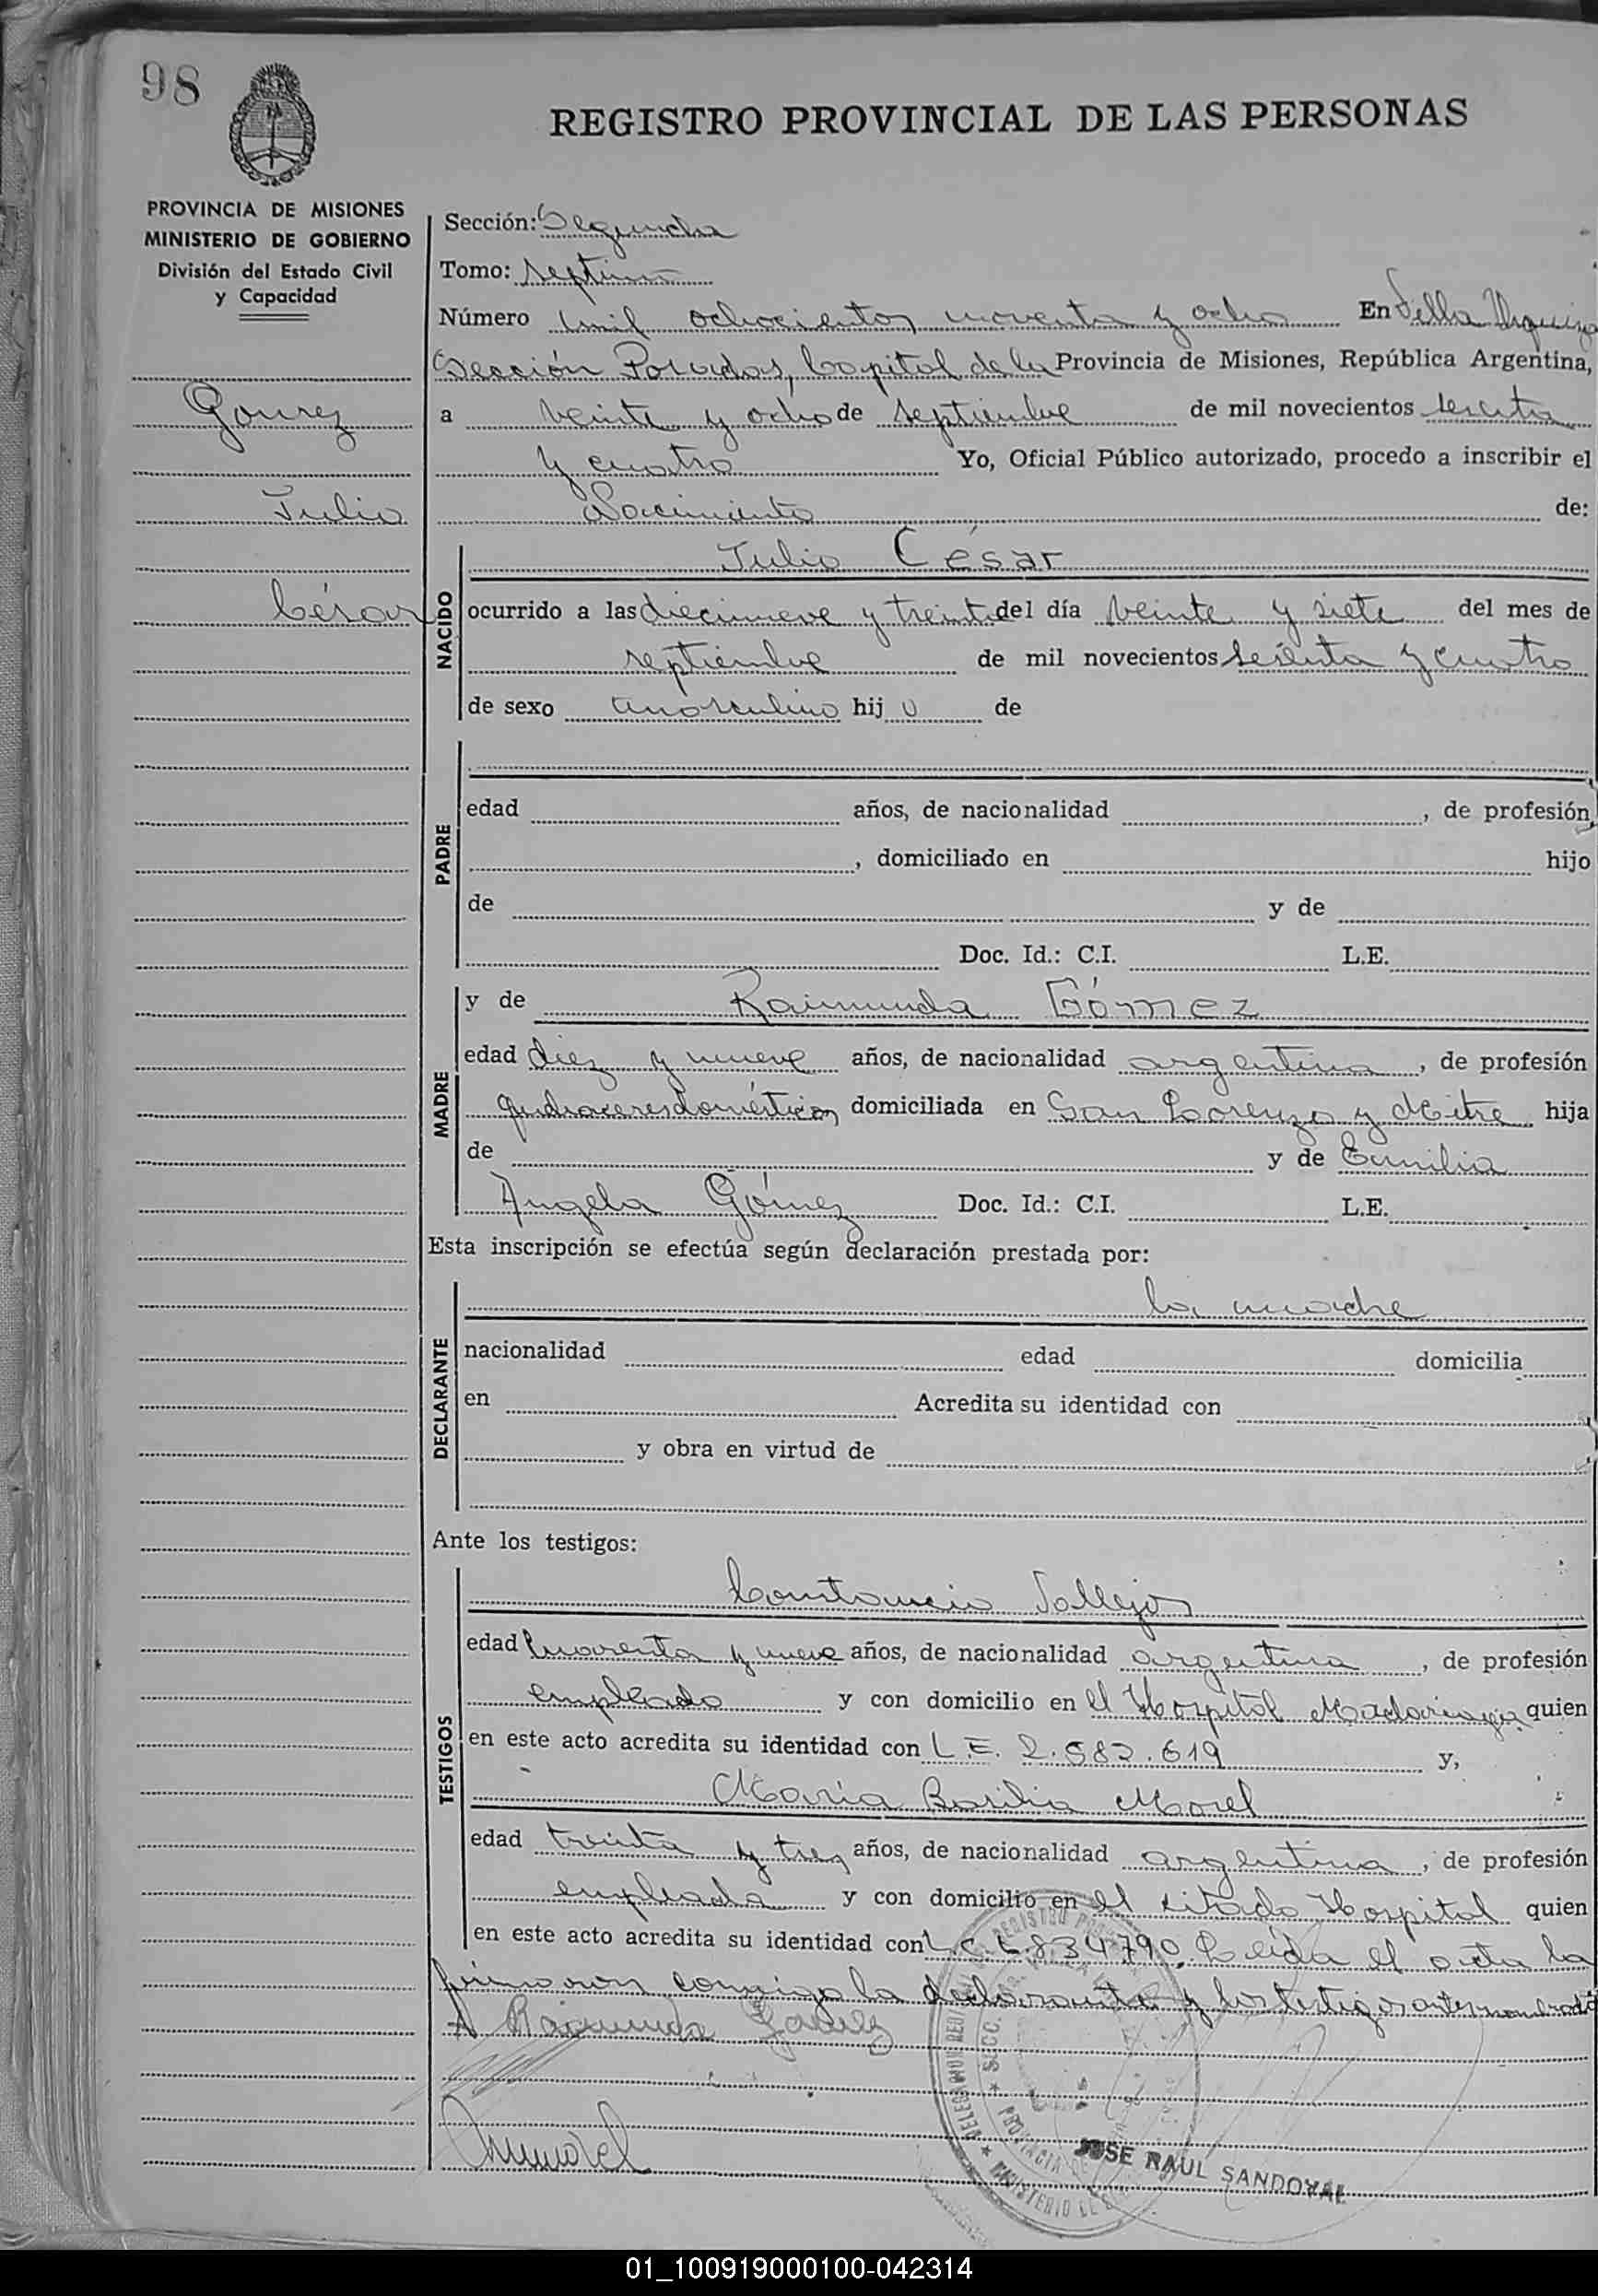 98
REGISTRO PROVINCIAL DE LAS PERSONAS
PROVINCIA DE MISIONES
MINISTERIO DE GOBIERNO
División del Estado Civil
y Capacidad
Gómez
Julio
César
Sección: Segunda
Tomo: septimo
Número mil ochocientos noventa y ocho En Villa Urquiza
Sección Posadas, Capital de la Provincia de Misiones, República Argentina,
a veinte y ocho de septiembre de mil novecientos sesenta
y cuatro Yo, Oficial Público autorizado, procedo a inscribir el
Nacimiento de:
NACIDO
Julio César
ocurrido a las diecinueve y treinta del día veinte y siete del mes de
septiembre de mil novecientos sesenta y cuatro
de sexo masculino hij o de
PADRE
edad años, de nacionalidad , de profesión,
, domiciliado en hijo
de y de
Doc. Id.: C.I. L.E.
MADRE
y de Raimunda Gómez
edad diez y nueve años, de nacionalidad argentina, de profesión
quehaceres domésticos domiciliada en San Lorenzo y Mitre hija
de y de Emilia
Angela Gómez Doc. Id.: C.I. L.E.
Esta inscripción se efectúa según declaración prestada por:
DECLARANTE
la madre
nacionalidad edad domicilia
en Acredita su identidad con
y obra en virtud de
Ante los testigos:
TESTIGOS
Constancio Vallejos
edad cuarenta y nueve años, de nacionalidad argentina, de profesión
empleado y con domicilio en el Hospital Madariaga quien
en este acto acredita su identidad con L.E. 2.582.619 y,
María Basilia Morel
edad treinta y tres años, de nacionalidad argentina, de profesión
empleada y con domicilio en el citado Hospital quien
en este acto acredita su identidad con L.C. 6.834790. Leida el acta la
firmaron conmigo la declarante y los testigos antes nombrados
Raimunda Gomez
JOSE RAUL SANDOVAL
01_100919000100-042314